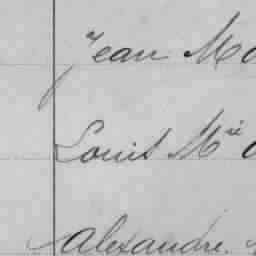 Jean Ma
Louis Mie
Alexandre